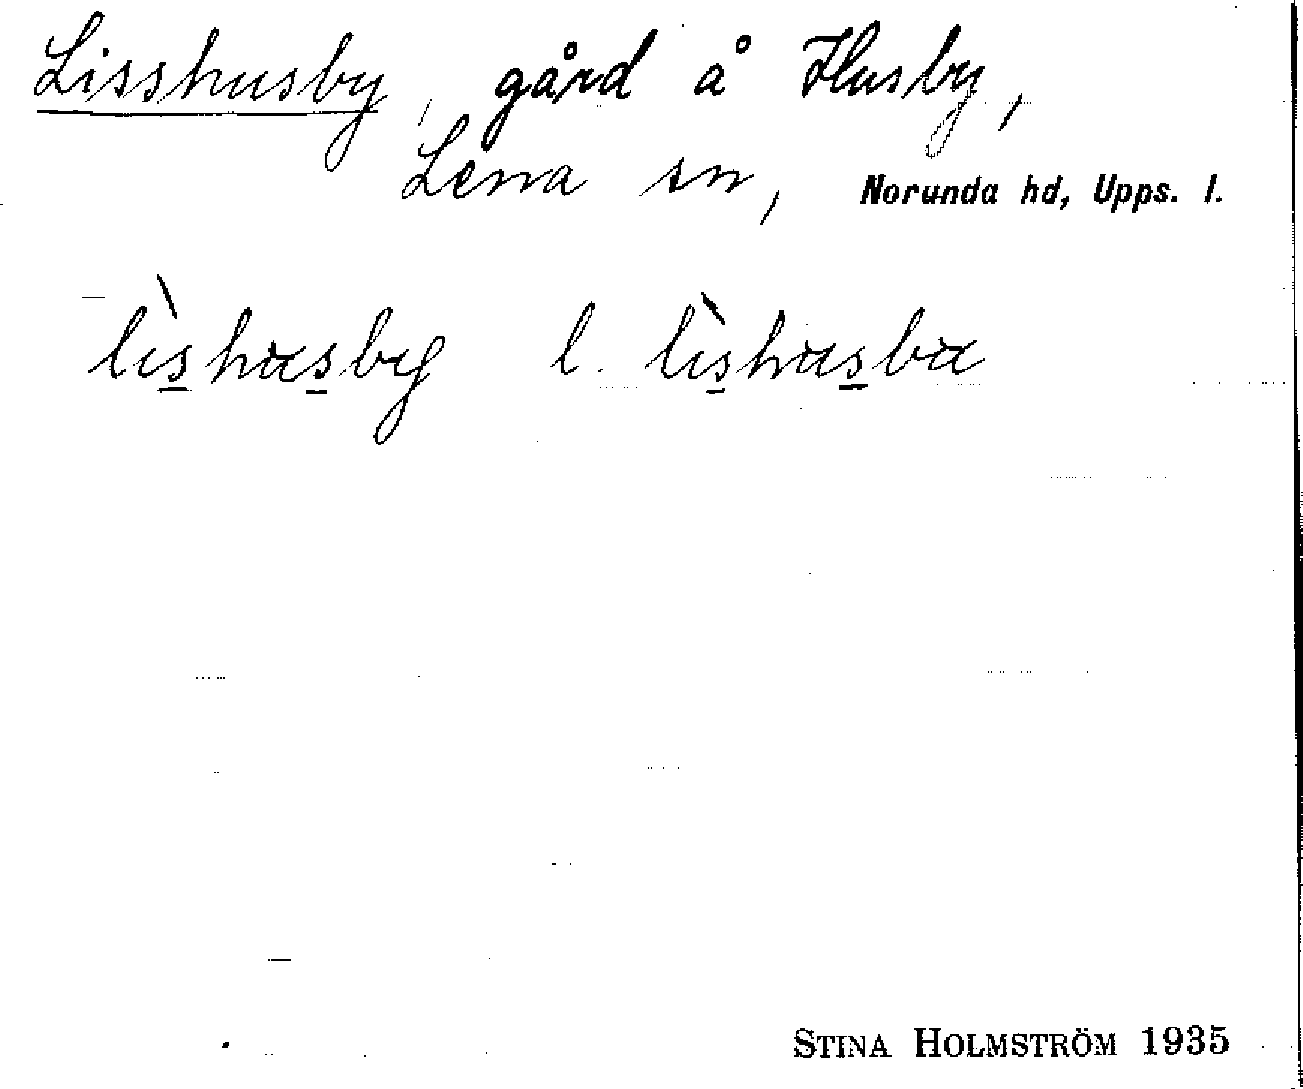 Lisshusby, gård å Husby,
Lena sn, Norunda hd, Upps. l.
lìs̱hus̱by l. lìs̱hus̱bu
STINA HOLMSTRÖM 1935